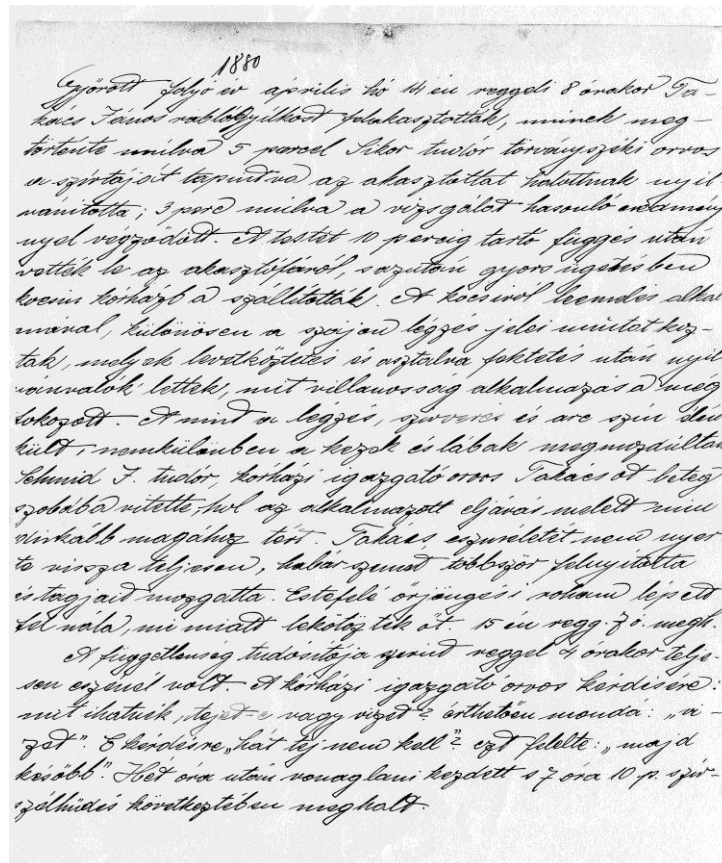 1880
Győrött folyó év április hó 14 én reggeli 8 órakor Ta-
kács János rablógyilkost felakasztották, minek meg-
történte múlva 5 perccel Sikor tudór törvényszéki orvos
a szívtáját tapintva az akasztottat halottnak nyil
vánította; 3 perc múlva a vizsgálat hasonló eredmény
nyel végződött. A testet 10 percig tartó függés után
vették le az akasztófáról, s azután gyors ügetésben
kocsin kórházba szállították. A kocsiról leemelés alkal
mával, különösen a szájon légzés jelei mutatkoz-
tak, melyek levetkőztetés és asztalra fektetés után nyil
vánvalók lettek, mit villanosság alkalmazása még
fokozott. Amint a légzés, szívverés és arc szín élén
kült, nemkülönben a kezek és lábak megmozdultak
Schmid J. tudór, kórházi igazgató orvos Takácsot beteg
szobába vitette, hol az alkalmazott eljárás mellett mind
inkább magához tért. Takács eszméletét nem nyer
te vissza teljesen, habár szemeit többször felnyitotta
és tagjait mozgatta. Estefelé őrjöngési roham lépett
fel nála, mi miatt lekötözték őt. 15 én regg. 7 ó. megh.
A függetlenség tudósítója szerint reggel 4 órakor telje-
sen eszénél volt. A kórházi igazgató orvos kérdésére:
mit ihatnék, tejet-e vagy vizet? érthetően mondá: „vi-
zet". E kérdésre „hát tej nem kell"? ezt felelte: „majd
később". Hét óra után vonaglani kezdett s 7 óra 10 p. szív-
szélhűdés következtében meghalt.